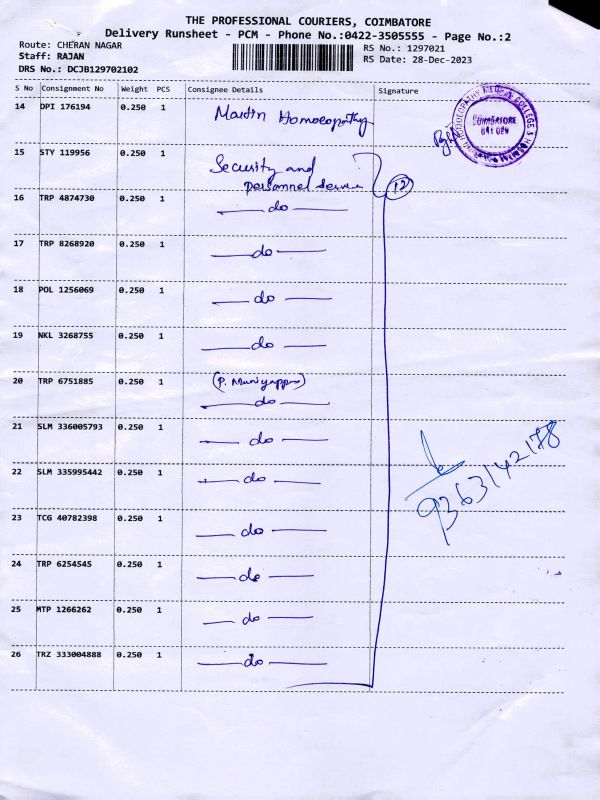 THE PROFESSIONAL COURIERS, COIMBATORE
Delivery Runsheet - PCM - Phone No.:0422-3505555 - Page No.:2
Route: CHERAN NAGAR
Staff: RAJAN
DRS No.: DCJB129702102
RS No.: 1297021
RS Date: 28-Dec-2023
S No Consignment No Weight PCS Consignee Details Signature
14 DPI 176194 0.250 1 Martin Homoeopathy
COIMBATORE
641 029
15 STY 119956 0.250 1 Security and
personnel service
12
16 TRP 4874730 0.250 1 do
17 TRP 8268920 0.250 1 do
18 POL 1256069 0.250 1 do
19 NKL 3268755 0.250 1 do
20 TRP 6751885 0.250 1 (P. Muniyappan)
do
21 SLM 336005793 0.250 1 do
22 SLM 335995442 0.250 1 do
9363142178
23 TCG 40782398 0.250 1 do
24 TRP 6254545 0.250 1 do
25 MTP 1266262 0.250 1 do
26 TRZ 333004888 0.250 1 do